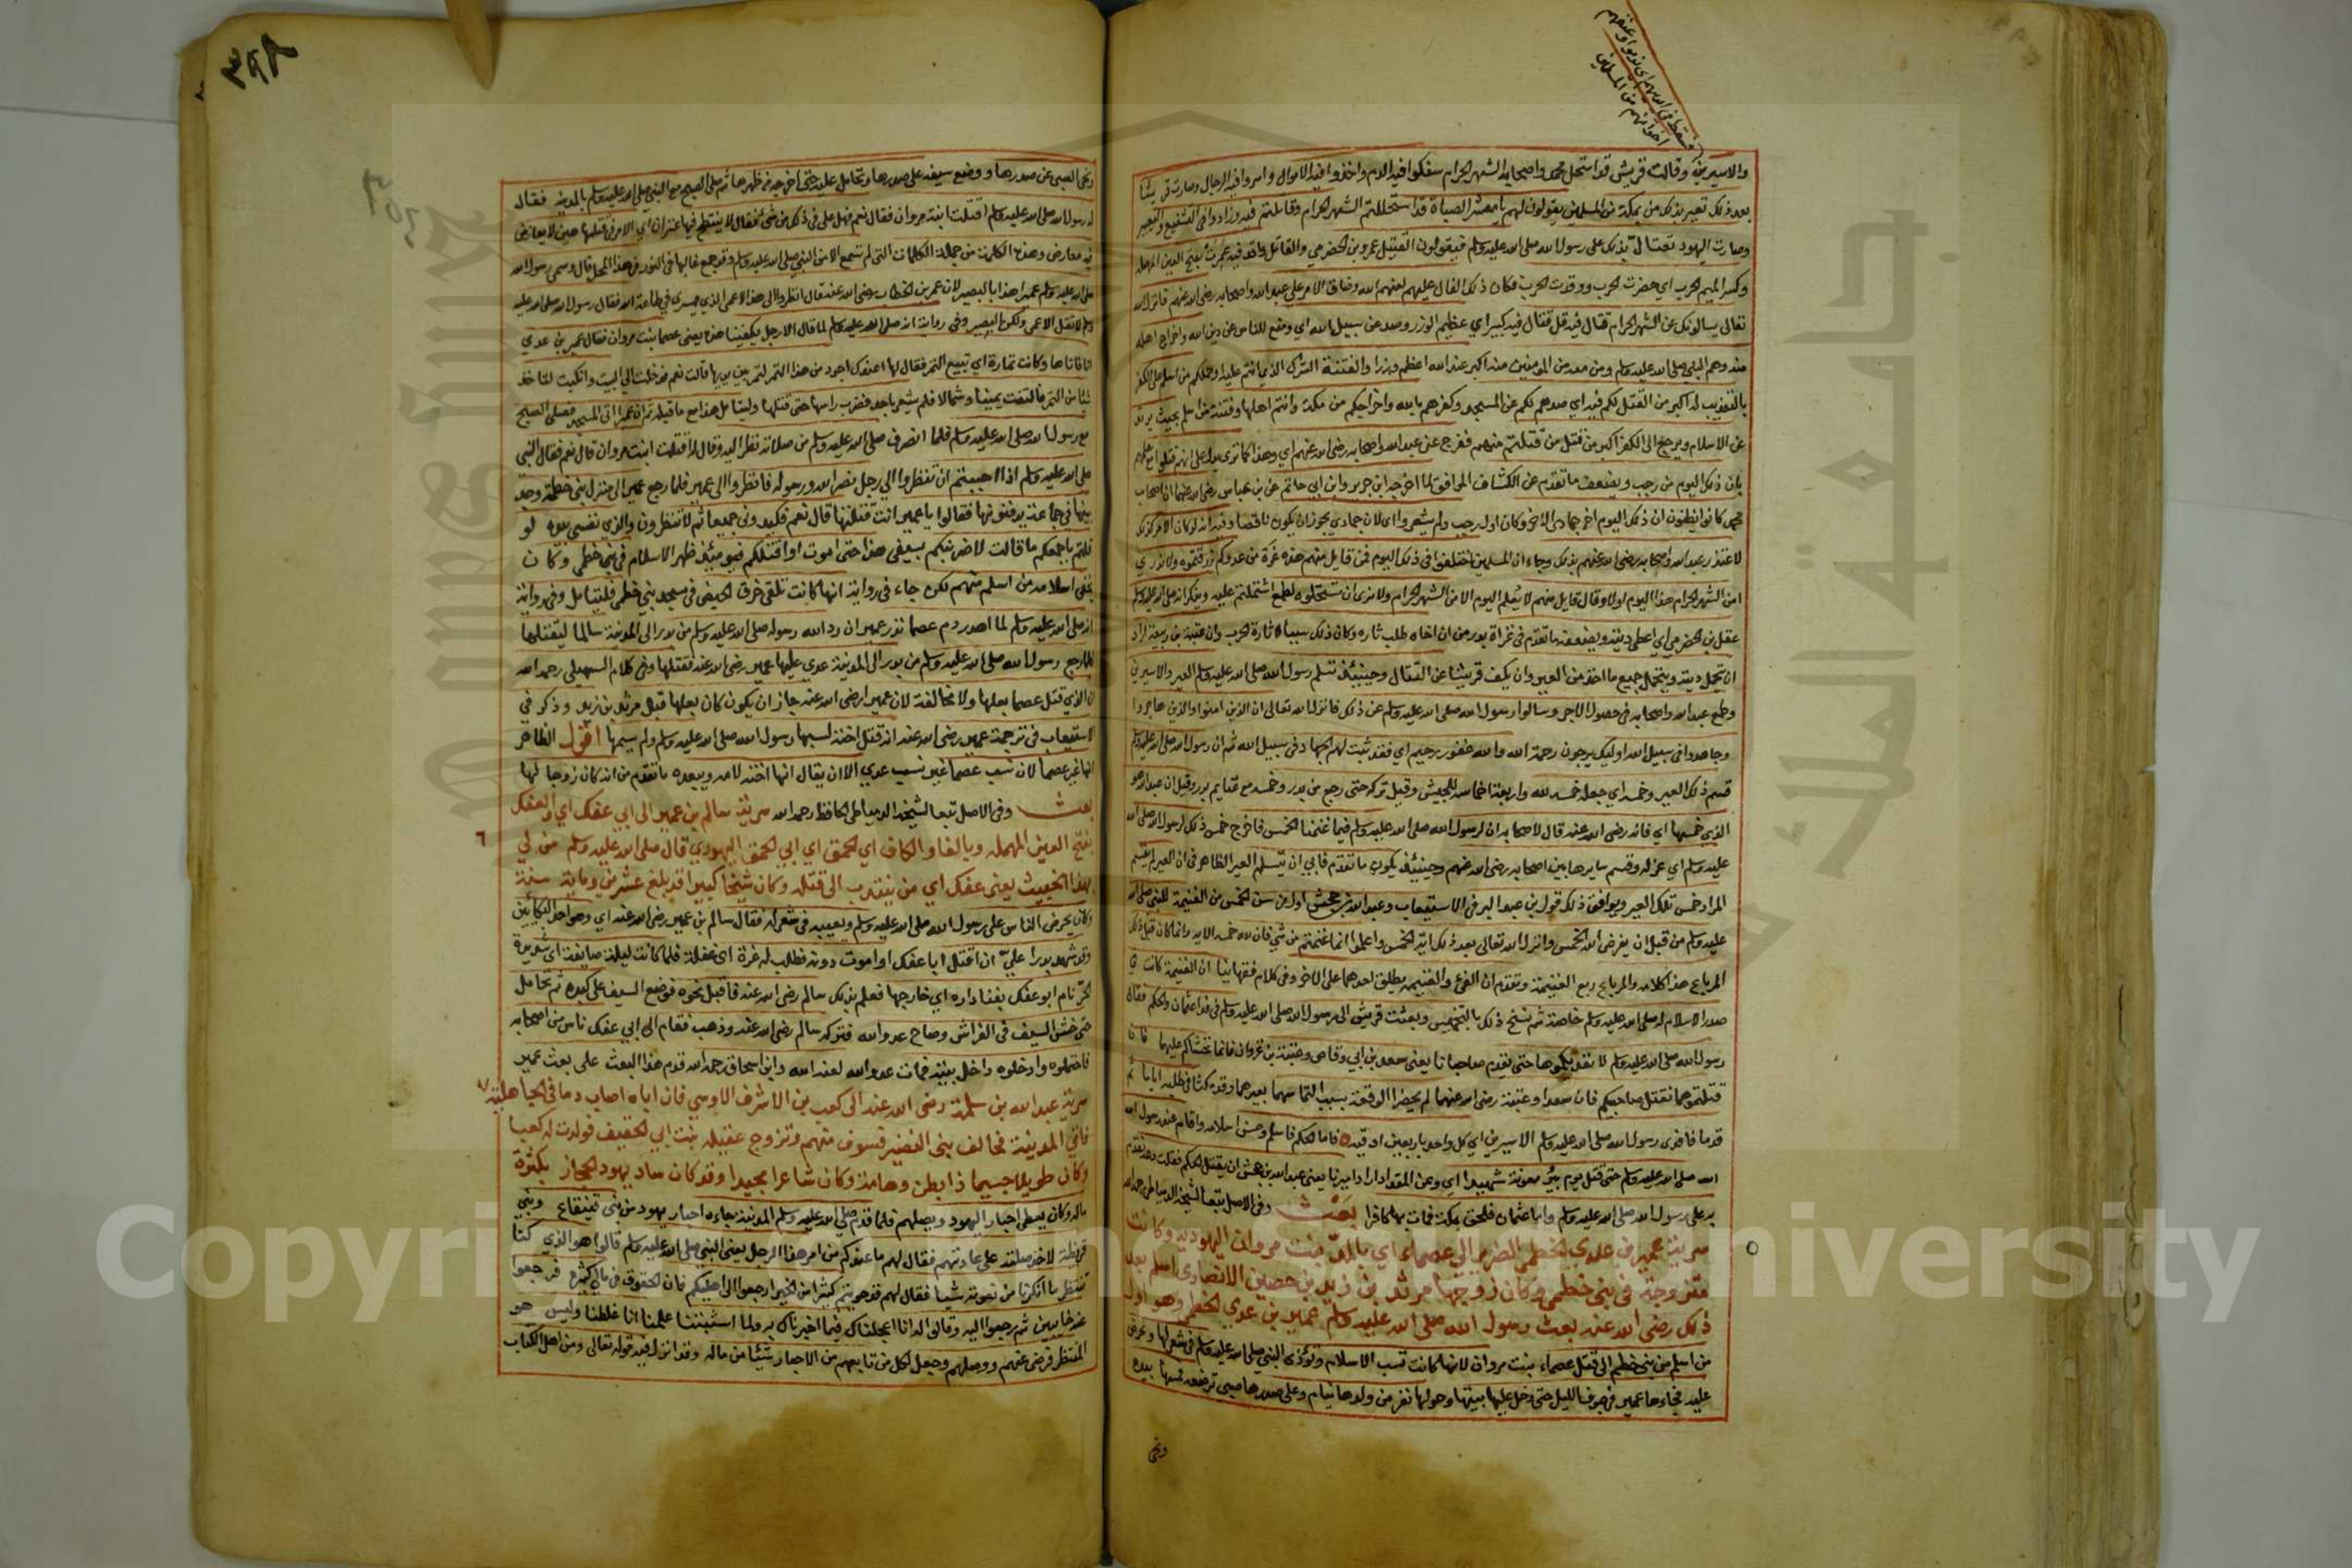 فسقط في ايديهم اي ندموا وعنفهم
اخوانهم من المسلمين
والاسيرين وقالت قريش قد استحل محمد واصحابه الشهر الحرام سفكوا فيه الدم واخذوا فيه الاموال واسروا فيه الرجال وصارت قريشا
بعد ذلك تعير بذلك من بمكة من المسلمين يقولون لهم يا معشر الصباة قد استحللتم الشهر الحرام وقاتلتم فيه وزادوا في التشنيع والتعيير
وصارت اليهود تتفال بذلك على رسول الله صلى الله عليه وسلم فيقولون القتيل عمرو بن الحضرمي والقاتل واقد فيه عمرت بفتح العين المهملة
وكسر الميم الحرب اي حضرت الحرب ووقدت الحرب فكان ذلك الفال عليهم لعنهم الله وضاق الامر على عبد الله واصحابه رضي الله عنهم فانزل الله
تعالى يسالونك عن الشهر الحرام قتال فيه قل قتال فيه كبير اي عظيم الوزر وصد عن سبيل الله اي ومنع للناس عن دين الله واخراج اهله
منه وهم النبي صلى الله عليه وسلم ومن معه من المؤمنين منه اكبر عند الله اعظم وزرا والفتنة الشرك الذي انتم عليه وحملكم من اسلم على الكفر
بالتعذيب له اكبر من القتل لكم فيه اي صدهم لكم عن المسجد وكفرهم بالله واخراجكم من مكة وانتم اهلها وفتنة من اسلم بحيث يرتد
عن الاسلام ويرجع الى الكفر اكبر من قتل من قتلتم منهم ففرج عن عبد الله واصحابه رضي الله عنهم اي وهذا كما ترى يدل على انهم قتلوا مع علمهم
بان ذلك اليوم من رجب ويضعف ما تقدم عن الكشاف الموافق لما اخرجه ابن جرير وابن ابي حاتم عن بن عباس رضي الله عنهما ان اصحاب
محمد كانوا يظنون ان ذلك اليوم اخر جمادى الاخر وكان اول رجب ولم يشعروا اي لان جمادى يجوز ان يكون ناقصا وفيه انه لو كان الامر كذلك
لاعتذر عبد الله واصحابه رضي الله عنهم بذلك وجاء ان المسلمين اختلفوا في ذلك اليوم فمن قايل منهم هذه غرة من عدوكم رزقتموه ولا ندري
امن الشهر الحرام هذا اليوم اولا وقال قايل منهم لا نعلم اليوم الا من الشهر الحرام ولا نرى ان تستحلوه لطمع اشتملتم عليه ويذكر انه صلى الله عليه وسلم
عقل بن الحضرمي اي اعطى ديته ويضعفه ما تقدم في غزاة بدر من ان اخاه طلب ثاره وكان ذلك سببا لاثارة الحرب وان عتبة بن ربيعة اراد
ان يتحمل ديته ويتحمل جميع ما اخذ من العير وان يكف قريشا عن القتال وحينئذ تسلم رسول الله صلى الله عليه وسلم العير والاسيرين
وطمع عبد الله واصحابه في حصول الاجر وسالوا رسول الله صلى الله عليه وسلم عن ذلك فانزل الله تعالى ان الذين امنوا والذين هاجروا
وجاهدوا في سبيل الله اوليك يرجون رحمة الله والله غفور رحيم اي فقد ثبت لهم الجهاد في سبيل الله ثم ان رسول الله صلى الله عليه وسلم
قسم ذلك العير وخمسه اي جعل خمسه لله واربعة اخماسه للجيش وقيل تركه حتى رجع من بدر وخمسه مع غنايم بدر وقيل ان عبد الله هو
الذي خمسها اي فانه رضي الله عنه قال لاصحابه ان لرسول الله صلى الله عليه وسلم فيما غنمنا الخمس فاخرج خمس ذلك لرسول الله صلى الله
عليه وسلم اي عزله وقسم سايرها بين اصحابه رضي الله عنهم وحينئذ يكون ما تقدم فابى ان يتسلم العير الظاهر في ان العير لم يقسم
المراد خمس تلك العير ويوافق ذلك قول بن عبد البر في الاستيعاب وعبد الله بن جحش اول من سن الخمس من الغنيمة للنبي صلى الله
عليه وسلم من قبل ان يفرض الله الخمس وانزل الله تعالى بعد ذلك اية الخمس واعلموا انما غنمتم من شي فان لله خمسه الاية وانما كان قبل ذلك
المرباع هذا كلامه والمرباع ربع الغنيمة وتقدم ان الفيء والغنيمة يطلق احدهما على الاخر وفي كلام فقهائنا ان الغنيمة كانت في
صدر الاسلام له صلى الله عليه وسلم خاصة ثم نسخ ذلك بالتخميس وبعثت قريش الى رسول الله صلى الله عليه وسلم في فداء عثمان والحكم فقال
رسول الله صلى الله عليه وسلم لا نفديكموهما حتى يقدم صاحبانا يعني سعد بن ابي وقاص وعتبة بن غزوان فانا نخشاكم عليهما فان
قتلتموهما نقتل صاحبيكم فان سعدا وعتبة رضي الله عنهما لم يحضرا الوقعة بسبب التماسهما بعيرهما وقد مكثا في طلبه اياما ثم
قدما فافدى رسول الله صلى الله عليه وسلم الاسيرين اي كل واحد باربعين اوقية فاما الحكم فاسلم وحسن اسلامه واقام عند رسول الله
صلى الله عليه وسلم حتى قتل يوم بئر معونة شهيدا اي وعن المقداد اراد اميرنا يعني عبد الله بن جحش ان يقتل الحكم فقلت دعه نقدم
به على رسول الله صلى الله عليه وسلم واما عثمان فلحق بمكة فمات بها كافرا بعث وفي الاصل تبعا لشيخه الدمياطي رحمه الله
سرية عمير بن عدي الخطمي الضرير الى عصماء اي بالمد بنت مروان اليهودية وكانت
متزوجة في بني خطمي وكان زوجها مرثد بن زيد بن حصين الانصاري اسلم بعد
ذلك رضي الله عنه بعث رسول الله صلى الله عليه وسلم عمير بن عدي الخطمي وهو اول
من اسلم من بني خطم الى قتل عصماء بنت مروان لانها كانت تسب الاسلام وتؤذي النبي صلى الله عليه وسلم في شعرها وتحرض
عليه فجاءها عمير في جوف الليل حتى دخل عليها بيتها وحولها نفر من ولدها نيام وعلى صدرها صبي ترضعه فمسها بيده
ونحى
٣٩٨
ونحى الصبي عن صدرها ووضع سيفه على صدرها وتحامل عليه حتى اخرجه من ظهرها ثم صلى الصبح مع النبي صلى الله عليه وسلم بالمدينة فقال
له رسول الله صلى الله عليه وسلم اقتلت ابنة مروان فقال نعم فهل علي في ذلك من شئ فقال لا ينتطح فيها عنزان اي الامر في قتلها هين لا يعارض
فيه معارض وهذه الكلمة من جملة الكلمات التي لم تسمع الا من النبي صلى الله عليه وسلم وقد جمع غالبها في النور في هذا المحل قال وسمى رسول الله
صلى الله عليه وسلم عميرا هذا بالبصير لان عمر بن الخطاب رضي الله عنه قال انظروا الى هذا الاعمى الذي يسري في طاعة الله فقال رسول الله صلى الله عليه
وسلم لا تقل الاعمى ولكن البصير وفي رواية انه صلى الله عليه وسلم لما قال الا رجل يكفينا هذه يعني عصما بنت مروان فقال عمير بن عدي
انا فاتاها وكانت تمارة اي تبيع التمر فقال لها اعندك اجود من هذا التمر لتمر بين يديها قالت نعم فدخلت الى البيت وانكبت لتاخذ
شيا من التمر فالتفت يمينا وشمالا فلم يشعر باحد فضرب راسها حتى قتلها وليتامل هذا مع ما قبله ثم ان عميرا اتى المسجد فصلى الصبح
مع رسول الله صلى الله عليه وسلم فلما انصرف صلى الله عليه وسلم من صلاته نظر اليه وقال له اقتلت ابنت مروان قال نعم فقال النبي
صلى الله عليه وسلم اذا احببتم ان تنظروا الى رجل نصر الله ورسوله فانظروا الى عمير فلما رجع عمير الى منزل بني خطمة وجد
بنيها في جماعة يدفنونها فقالوا يا عمير انت قتلتها قال نعم فكيدوني جميعا ثم لا تنظرون والذي نفسي بيده لو
قلتم باجمعكم ما قالت لاضربنكم بسيفي هذا حتى اموت او اقتلكم فيومئذ ظهر الاسلام في بني خطمي وكان
يخفي اسلامه من اسلم منهم لكن جاء في رواية انها كانت تلقي خرق الحيض في مسجد بني خطمي فليتامل وفي رواية
انه صلى الله عليه وسلم لما اهدر دم عصما نذر عمير ان رد الله رسوله صلى الله عليه وسلم من بدر الى المدينة سالما ليقتلنها
فلما رجع رسول الله صلى الله عليه وسلم من بدر الى المدينة عدى عليها عمير رضي الله عنه فقتلها وفي كلام السهيلي رحمه الله
ان الذي قتل عصما بعلها ولا مخالفة لان عميرا رضي الله عنه جاز ان يكون كان بعلها قبل مرثد بن زيد وذكر في
الاستيعاب في ترجمة عمير رضي الله عنه انه قتل اخته لسبها رسول الله صلى الله عليه وسلم ولم يسمها اقول الظاهر
انها غير عصما لان نسب عصما غير نسب عدي الا ان يقال انها اخته لامه ويبعده ما تقدم من انه كان زوجا لها
بعث وفي الاصل تبعا لشيخه الدمياطي الحافظ رحمه الله سرية سالم بن عمير الى ابي عفك اي والعفك
بفتح العين المهملة وبالفا والكاف اي الحمق اي ابي الحمق اليهودي قال صلى الله عليه وسلم من لي
٦
بهذا الخبيث يعني عفك اي من ينتدب الى قتله وكان شيخا كبيرا قد بلغ عشرين ومايه سنة
وكان يحرض الناس على رسول الله صلى الله عليه وسلم ويعيبه في شعر له فقال سالم بن عمير رضي الله عنه اي وهو احد البكائين
وقد شهد بدرا علي ان اقتل ابا عفك او اموت دونه فطلب له غرة اي غفلة فلما كانت ليلة صايفة اي شديدة
الحر نام ابو عفك بفنا داره اي خارجها فعلم بذلك سالم رضي الله عنه فاقبل نحوه فوضع السيف على كبده ثم تحامل
حتى خش السيف في الفراش وصاح عدو الله فتركه سالم رضي الله عنه وذهب فقام الى ابي عفك ناس من اصحابه
فاحتملوه وادخلوه داخل بيته فمات عدو الله لعنه الله وابن اسحاق رحمه الله قدم هذا البعث على بعث عمير
٧
سرية عبد الله بن سلمة رضي الله عنه الى كعب بن الاشرف الاوسي فان اباه اصاب دما في الجاهلية
فاتى المدينة فحالف بني النضير فسوف منهم وتزوج عقيله بنت ابي الحقيق فولدت له كعبا
وكان طويلا جسيما ذا بطن وهامة وكان شاعرا مجيدا وقد كان ساد يهود الحجاز بكثرة
ماله وكان يعطي احبار اليهود ويصلهم فلما قدم صلى الله عليه وسلم المدينة جاءه احبار يهود من بني قينقاع وبني
قريظة لاخذ صلته على عادتهم فقال لهم ما عندكم من امر هذا الرجل يعني النبي صلى الله عليه وسلم قالوا هو الذي كنا
ننتظر ما انكرنا من نعوته شيا فقال لهم قد حرمتم كثيرا من الخير ارجعوا الى اهليكم فان الحقوق في مالي كثيرة فرجعوا
عنه خايبين ثم رجعوا اليه وقالوا له انا اعجلناك فيما اخبرناك به ولما استثبتنا علمنا انا غلطنا وليس هو
المنتظر فرضي عنهم ووصلهم وجعل لكل من تابعهم من الاحبار شيئا من ماله وقد انزل فيه قوله تعالى ومن اهل الكتاب
جامعة الملك
Copyright © King Saud University